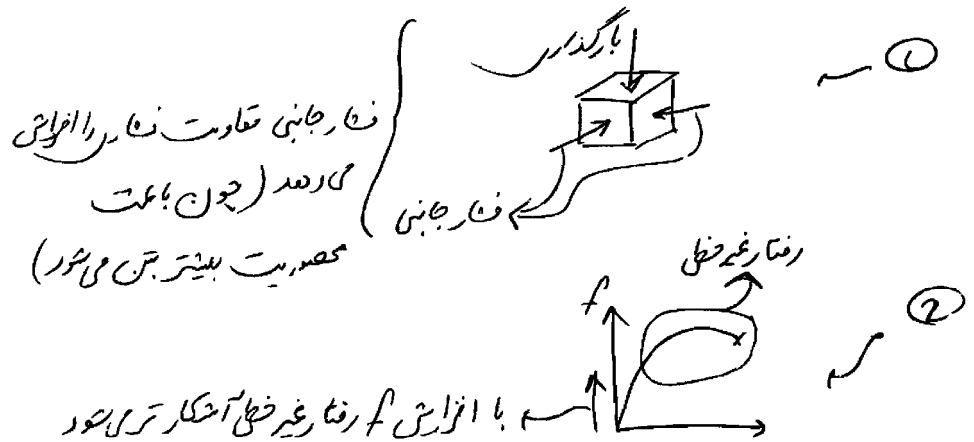 ①
بارگذاری
فشار جانبی
فشار جانبی مقاومت فشاری را افزایش
می‌دهد (چون باعث
محصوریت بیشتر بتن می‌شود)
②
رفتار غیر خطی
f
با افزایش f رفتار غیر خطی آشکار تر می‌شود